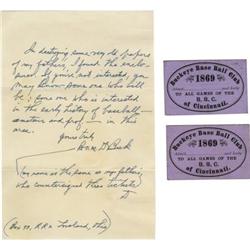 In destroying some very old papers
of my fathers, I found the enclo-
sures. If you're not interested, you
may know some one who will
be; some one who is interested
in the early history of baseball-
amateur and prof - in this
area.
Yours truly
(No
as the
as my father,
who countersigned these tickets)
(Box 99, R.R.2 Loveland, Ohio)
Buckeye Base Ball Club
1869
Admit and Lady
TO ALL GAMES OF THE
B. B. C.
of Cincinnati.
Buckeye Base Ball Club
1869
Admit and Lady
TO ALL GAMES OF THE
B. B. C.
of Cincinnati.